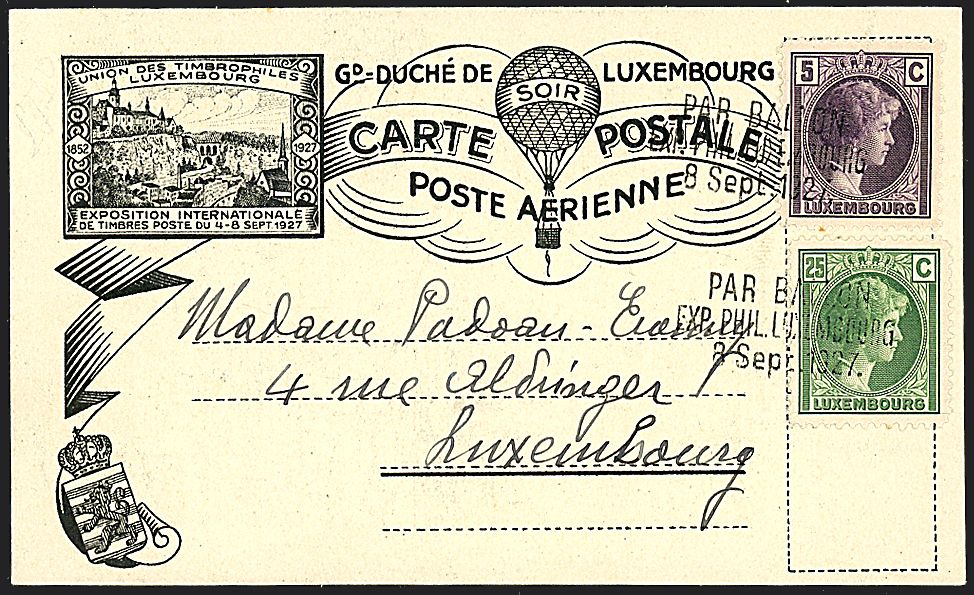 UNION DES TIMBROPHILES
LUXEMBOURG
1852
1927
EXPOSITION INTERNATIONALE
DE TIMBRES POSTE DU 4-8 SEPT. 1927
GD=DUCHÉ DE LUXEMBOURG
SOIR
CARTE POSTALE
POSTE AÉRIENNE
5 C
LUXEMBOURG
PAR BALLON
EXP. PHIL. LUXEMBOURG
8 Sept. 1927.
25 C
LUXEMBOURG
PAR BALLON
EXP. PHIL. LUXEMBOURG
8 Sept. 1927.
Madame Padoan-
4 rue Aldringer
Luxembourg